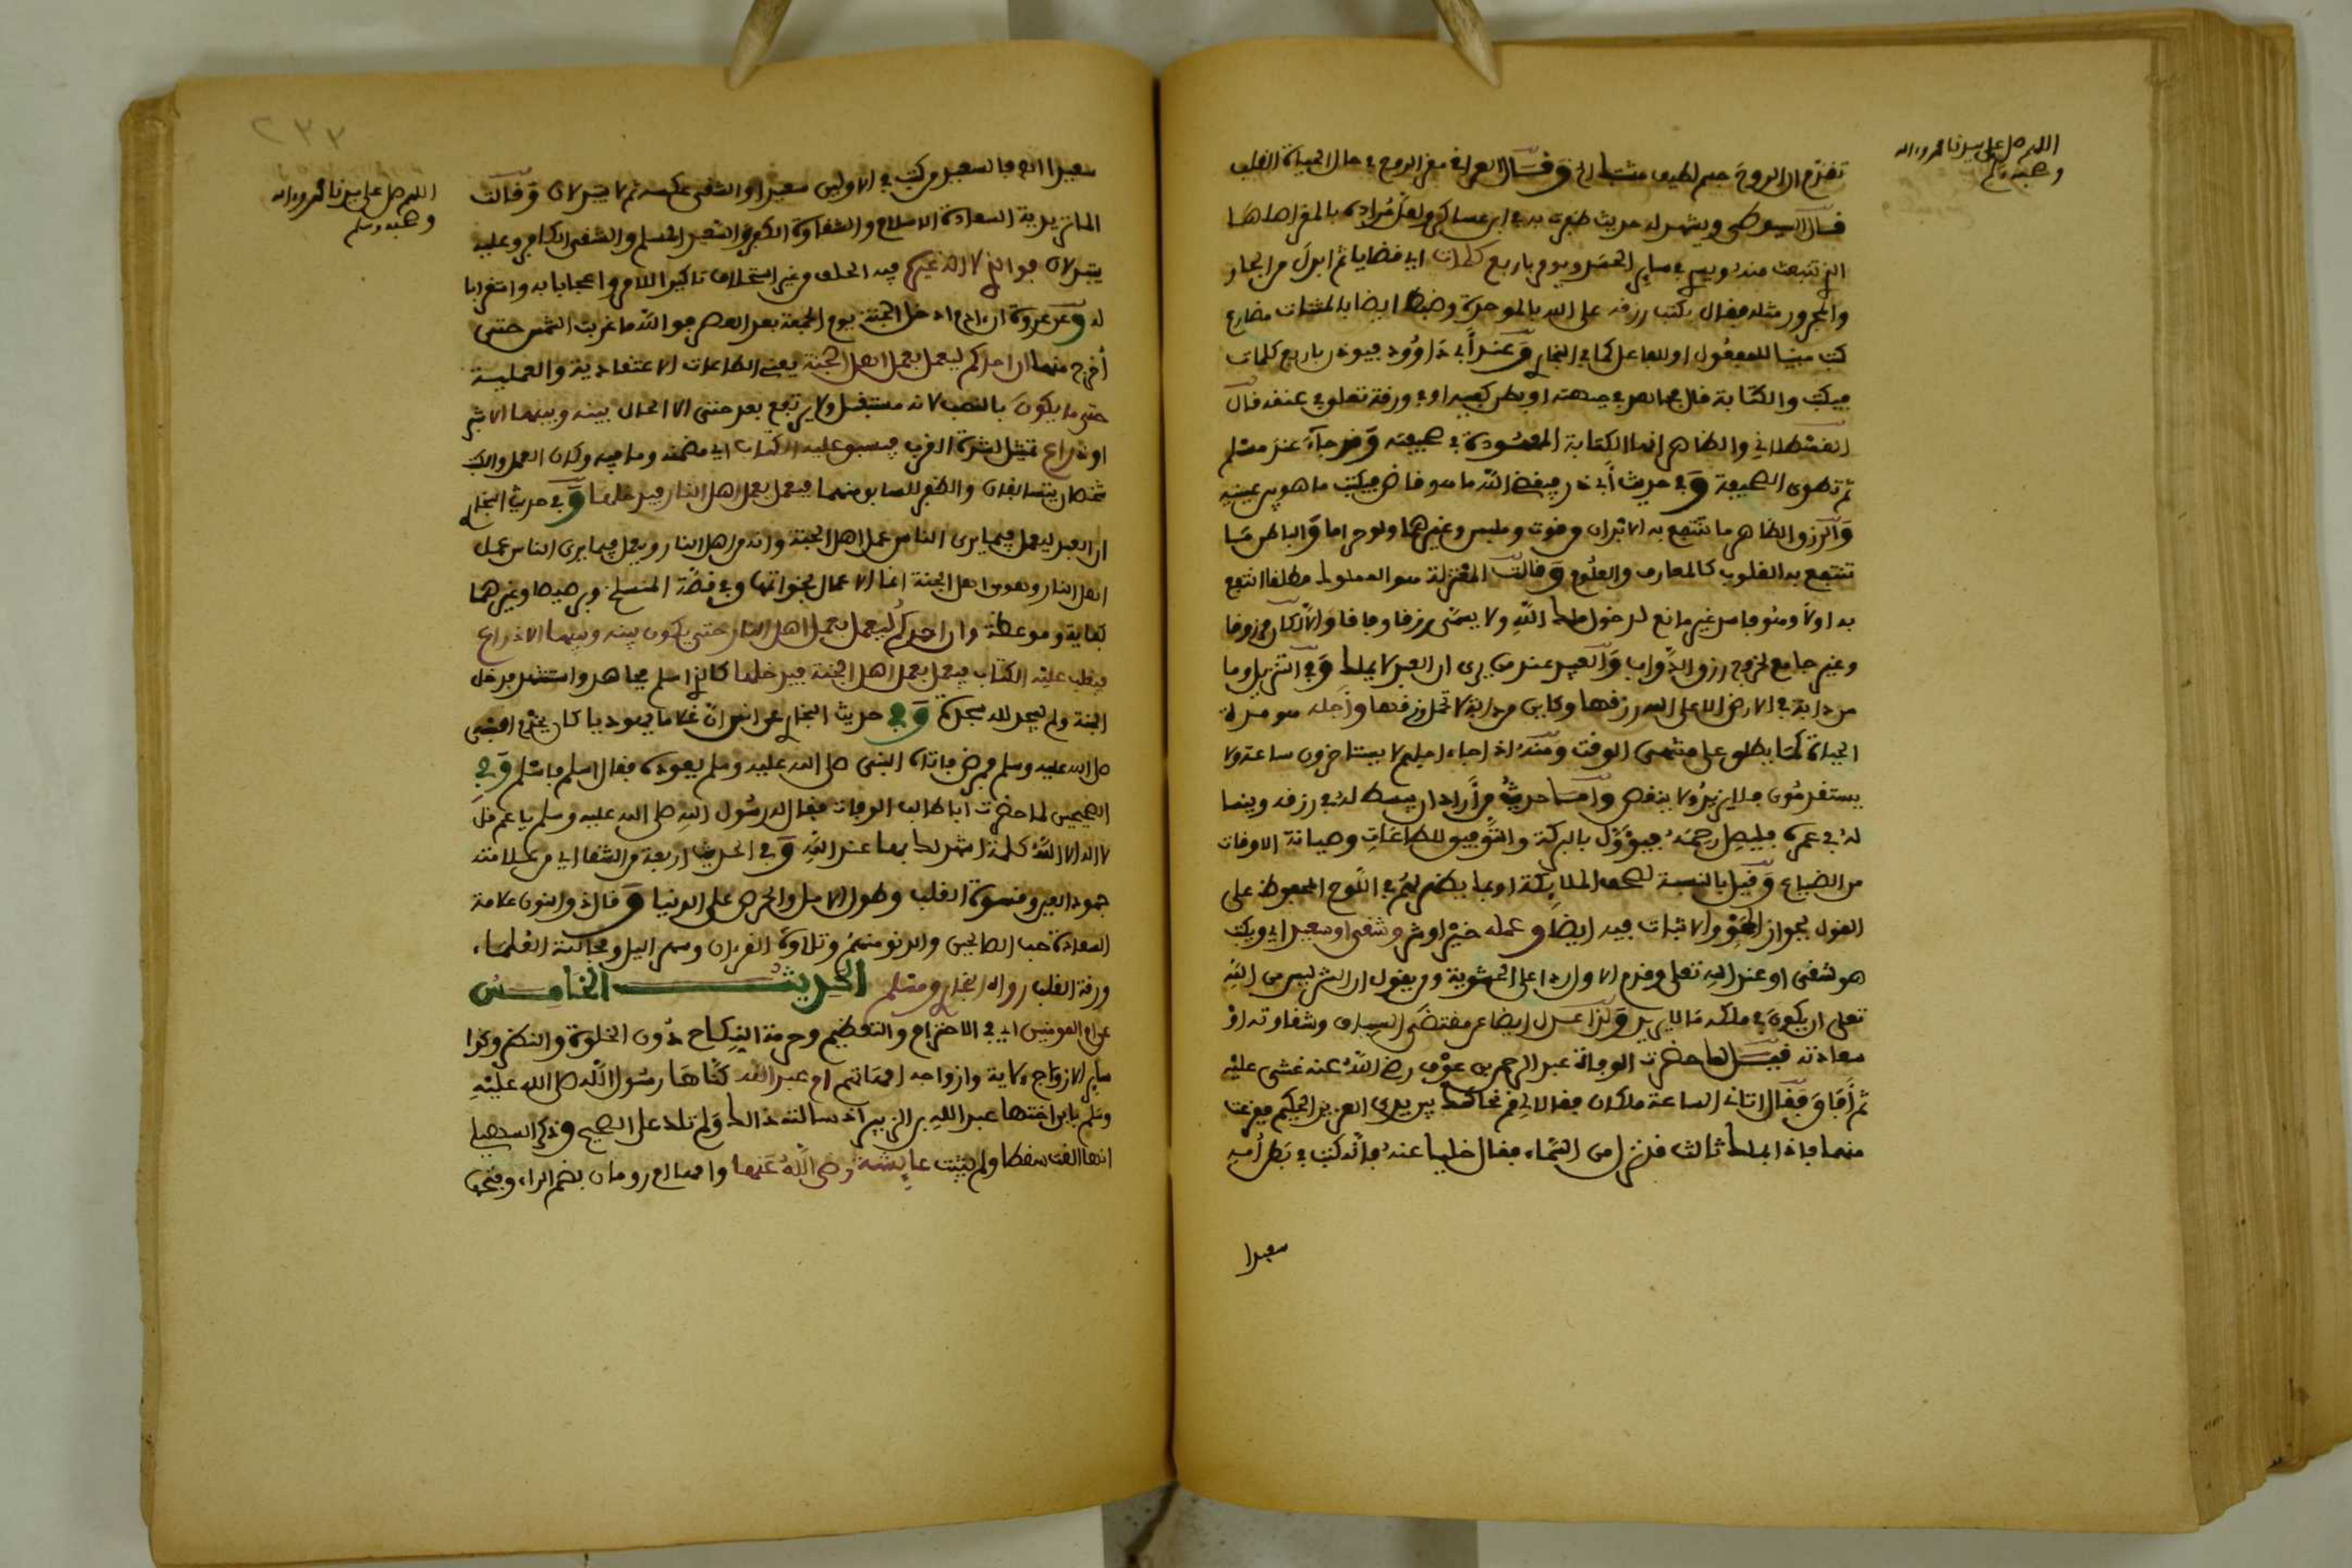 اللهم صل على سيدنا محمد وءاله
وصحبه وسلم
تقدم ان الروح جسم لطيف متشابك وقال العراقي مقر الروح في حال الحياة القلب
قال السيوطي ويشهد له حديث ابن عساكر ولعل مراده بالمقر اصلها
الذي تنبعث منه ويسري في سائر الجسد ويومر باربع كلمات اي قضايا ثم ابدل من الجار
والمجرور مثله فقال بكتب رزقه على انه بالموحدة وضبط ايضا بالمثناة مضارع
كتب مبنيا للمفعول او للفاعل كما في البخاري وعند أبي داوود فيوذن باربع كلمات
فيكتب والكتابة قال مجاهد في جبهته او بطن كفيه او في ورقة تعلق في عنقه قال
القسطلاني والظاهر انها الكتابة المعهودة في صحيفته وقد جاء عند مسلم
ثم تطوى الصحيفة وفي حديث أبي ذر فيقضي الله ما هو قاض فيكتب ما هو بين عينيه
والرزق الظاهر ما تنتفع به الابدان من قوت وملبس وغيرهما ولو حراما والباطن ما
تنتفع به القلوب كالمعارف والعلوم وقالت المعتزلة هو المملوك مطلقا انتفع
به اولا وهو فاسد غير مانع لدخول ملك الله ولا يسمى رزقا وفاقا والا لكان مرزوقا
وغير جامع لخروج رزق الدواب والعبيد عند من يرى ان العبد لا يملك وفي التنزيل وما
من دابة في الارض الا على الله رزقها وكاين من دابة لا تحمل رزقها وأجله هو مدة
الحياة كما يطلق على منتهى الوقت ومنه اذا جاء اجلهم لا يستاخرون ساعة ولا
يستقدمون فلا يزيد ولا ينقص وأما حديث من أراد ان يبسط له في رزقه وينسا
له في عمره فليصل رحمه فيؤول بالبركة والتوفيق للطاعات وصيانة الاوقات
من الضياع وقيل بالنسبة لصحف الملائكة او بما يظهر لهم في اللوح المحفوظ على
القول بجواز المحو والاثبات فيه ايضا وعمله خير او شر وشقي او سعيد اي ويكتب
هو شقي او عند الله تعلى وقدم الاول ردا على الحشوية ومن يقول ان الشر ليس من الله
تعلى ان يكون في ملكه ما لا يريد ولذا عدل ايضا عن مقتضى السياق وشقاوته او
سعادته قيل لما حضرت الوفاة عبد الرحمن بن عوف رضي الله عنه غشي عليه
ثم أفاق فقال اتاني الساعة ملكان فقالا لي قم نحاكمك بين يدي العزيز الحكيم ففزعت
منهما فاذا بملك ثالث قد نزل من السماء فقال خليا عنه فانه كتب في بطن أمه
سعيدا
٢٣٣
اللهم صل على سيدنا محمد وءاله
وصحبه وسلم
سعيدا اه فالسعيد من كتب في الاولين سعيدا والشقي عكسه ثم لا يتبدلان وقالت
الماتريدية السعادة الاسلام والشقاوة الكفر والسعيد المسلم والشقي الكافر وعليه
يتبدلان فوالذي لا اله غيره فيه الحلف من غير استحلاف تاكيدا للامر واعجابا به واستغرابا
له وعن عروة ان ءادم ادخل الجنة يوم الجمعة بعد العصر فوالله ما غربت الشمس حتى
أخرج منها ان احدكم ليعمل بعمل اهل الجنة يعني الطاعات الاعتقادية والعملية
حتى ما يكون بالنصب لانه مستقبل ولا يرتفع بعد حتى الا الحال بينه وبينها الا شبر
او ذراع تمثيل لشدة القرب فيسبق عليه الكتاب اي مضمنه وما فيه وكان العمل والكتاب
شخصان يتسابقان والظفر للسابق منهما فيعمل بعمل اهل النار فيدخلها وفي حديث البخاري
ان العبد ليعمل فيما يرى الناس عمل اهل الجنة وانه من اهل النار ويعمل فيما يرى الناس عمل
اهل النار وهو من اهل الجنة انما الاعمال بخواتمها وفي قصة المنسلخ وبرصيصا وغيرهما
كفاية وموعظة وان احدكم ليعمل بعمل اهل النار حتى يكون بينه وبينها الا ذراع
فيغلب عليه الكتاب فيعمل بعمل اهل الجنة فيدخلها كالذي اسلم مجاهد واستشهد فدخل
الجنة ولم يسجد لله سجدة وفي حديث البخاري عن انس ان غلاما يهوديا كان يخدم النبي
صلى الله عليه وسلم فمرض فاتاه النبي صلى الله عليه وسلم يعوده فقال اسلم فاسلم وفي
الصحيحين لما حضرت أبا طالب الوفات فقال له رسول الله صلى الله عليه وسلم يا عم قل
لا اله الا الله كلمة اشهد لك بها عند الله وفي الحديث اربعة من الشقا اي من علامته
جمود العين وقسوة القلب وطول الامل والحرص على الدنيا وقال ذو النون علامة
السعادة حب الصالحين والدنو منهم وتلاوة القرءان وسهر اليل ومجالسة العلماء
ورقة القلب رواه البخاري ومسلم الحديث الخامس
عن ام المومنين اي في الاحترام والتعظيم وحرمة النكاح دون الخلوة والنظر وكذا
سائر الازواج لاية وازواجه امهاتهم ام عبد الله كناها رسول الله صلى الله عليه
وسلم بابن اختها عبد الله بن الزبير اذ سالته ذالك ولم تلد على الصحيح وذكر السهيلي
انها القت سقطا ولم يثبت عايشة رضي الله عنها وامها ام رومان بضم الراء وفتحها